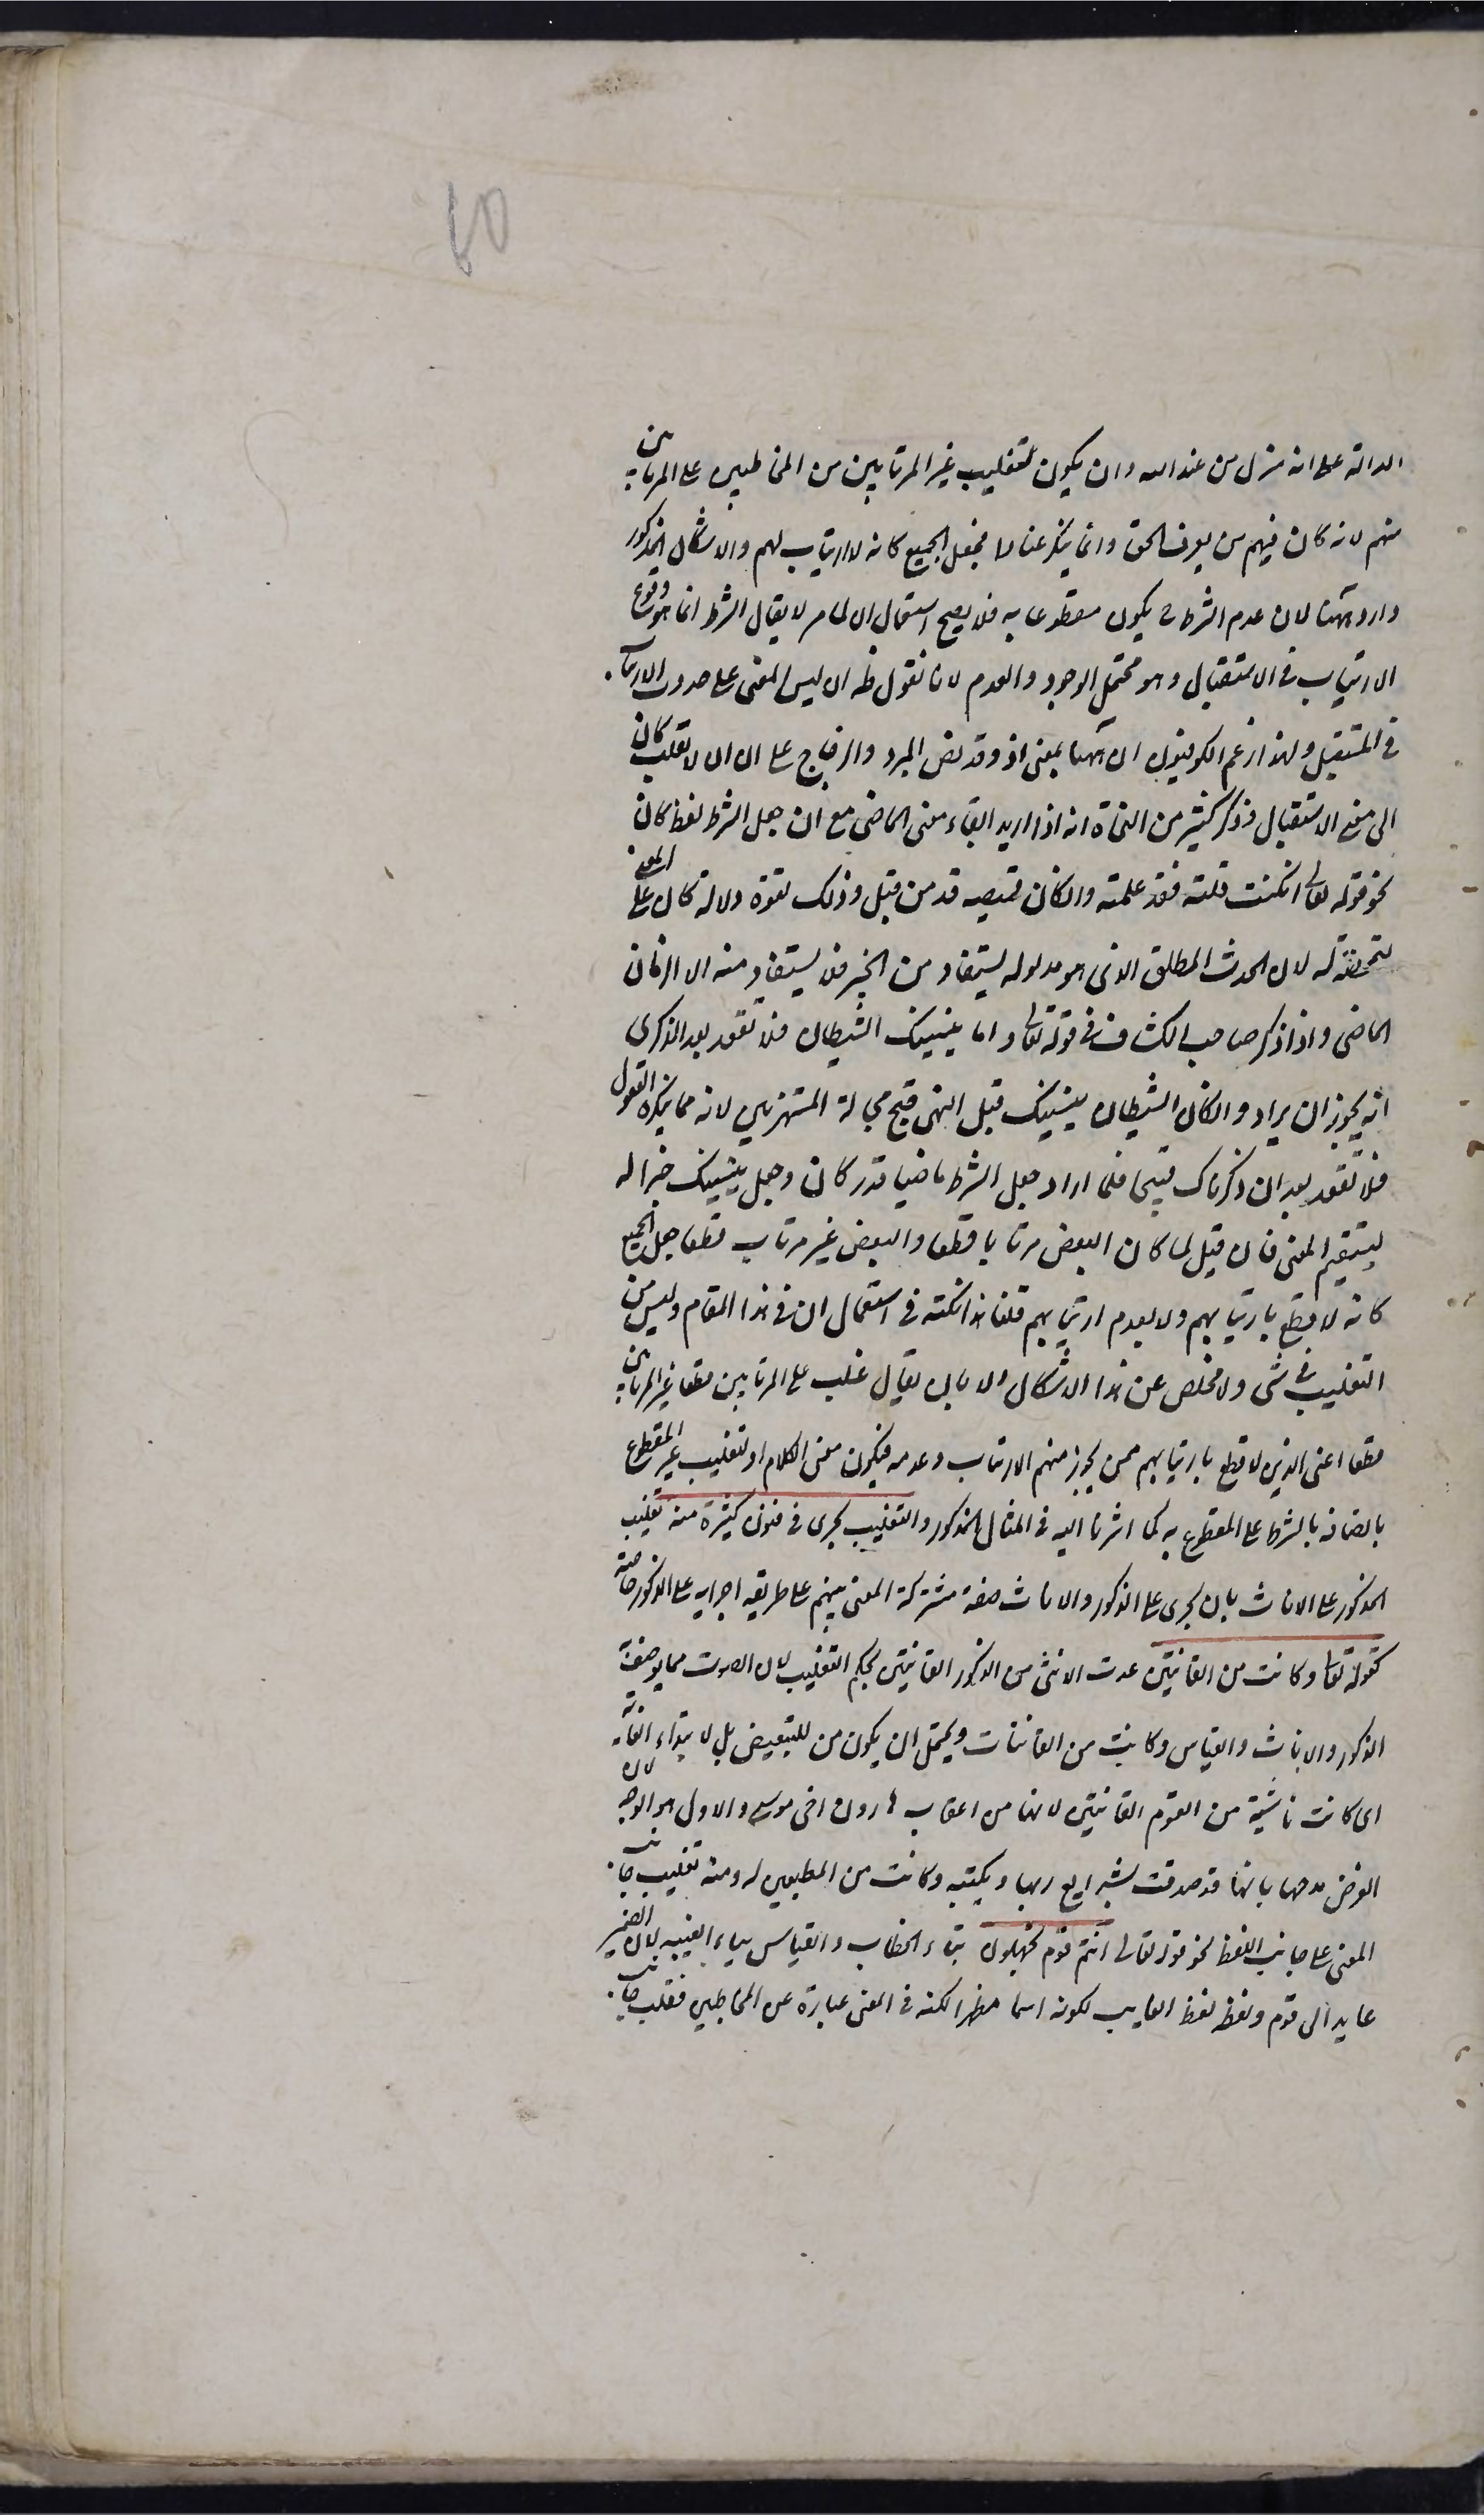 60
الدالة على انه منزل من عند الله وان يكون لتغليب غير المرتابين من المخاطبين على المرتابين
منهم لانه كان فيهم من يعرف الحق وانما ينكر عنادا فجعل الجميع كانه لا ارتياب لهم والاشكال المذكور
وارد ههنا لان عدم الشرط ح يكون مقطوعا به فلا يصح استعمال ان لما مر لا يقال الشرط انما هو وقوع
الارتياب في الاستقبال وهو محتمل الوجود والعدم لانا نقول ظه ان ليس المعنى على حدوث الارتياب
في المستقبل ولهذا زعم الكوفيون ان ههنا بمعنى اذ وقد نص المبرد والزجاج على ان ان لا تقلب كان
الى معنى الاستقبال وذكر كثير من النحاة انه اذا اريد ابقاء معنى الماضي مع ان جعل الشرط لفظ كان
نحو قوله تعالى ان كنت قلته فقد علمته وان كان قميصه قد من قبل وذلك لقوة دلالة كان على المضي
لتمحضه له لان الحدث المطلق الذي هو مدلوله يستفاد من الخبر فلا يستفاد منه الا الزمان
الماضي واذا ذكر صاحب الكشاف في قوله تعالى واما ينسينك الشيطان فلا تقعد بعد الذكرى
انه يجوز ان يراد وان كان الشيطان ينسينك قبل النهي قبح مجالسة المستهزئين لانه مما ينكره العقول
فلا تقعد بعد ان ذكرناك قبحها فلما اراد جعل الشرط ماضيا قدر كان وجعل ينسينك خبرا له
ليستقيم المعنى فان قيل لما كان البعض مرتابا قطعا والبعض غير مرتاب قطعا جعل الجميع
كانه لا قطع بارتيابهم ولا بعدم ارتيابهم قلنا هذا نكتة في استعمال ان في هذا المقام وليس من
التغليب في شئ ولا مخلص عن هذا الاشكال الا بان يقال غلب على المرتابين قطعا غير المرتابين
قطعا اعنى الذين لا قطع بارتيابهم ممن يجوز منهم الارتياب وعدمه فيكون معنى الكلام او لتغليب غير المقطوع
باتصافه بالشرط على المقطوع به كما اشرنا اليه في المثال المذكور والتغليب يجرى في فنون كثيرة منه تغليب
المذكور على الاناث بان يجرى على الذكور والاناث صفة مشتركة المعنى بينهم على طريقه اجرايه على الذكور خاصة
كقوله تعالى وكانت من القانتين عدت الانثى من الذكور القانتين بحكم التغليب لان القنوت مما يوصف به
الذكور والاناث والقياس وكانت من القانتات ويحتمل ان يكون من للتبعيض بل لابتداء الغاية
اى كانت ناشية من القوم القانتين لانها من اعقاب هارون اخى موسى والاول هو الوجه لان
الغرض مدحها بانها قد صدقت بشرايع ربها وبكتبه وكانت من المطيعين له ومنه تغليب جانب
المعنى على جانب اللفظ نحو قوله تعالى انتم قوم تجهلون بتاء الخطاب والقياس بياء الغيبة لان الضمير
عايد الى قوم ولفظه لفظ الغايب لكونه اسما مظهرا لكنه في المعنى عبارة عن المخاطبين فغلب جانب